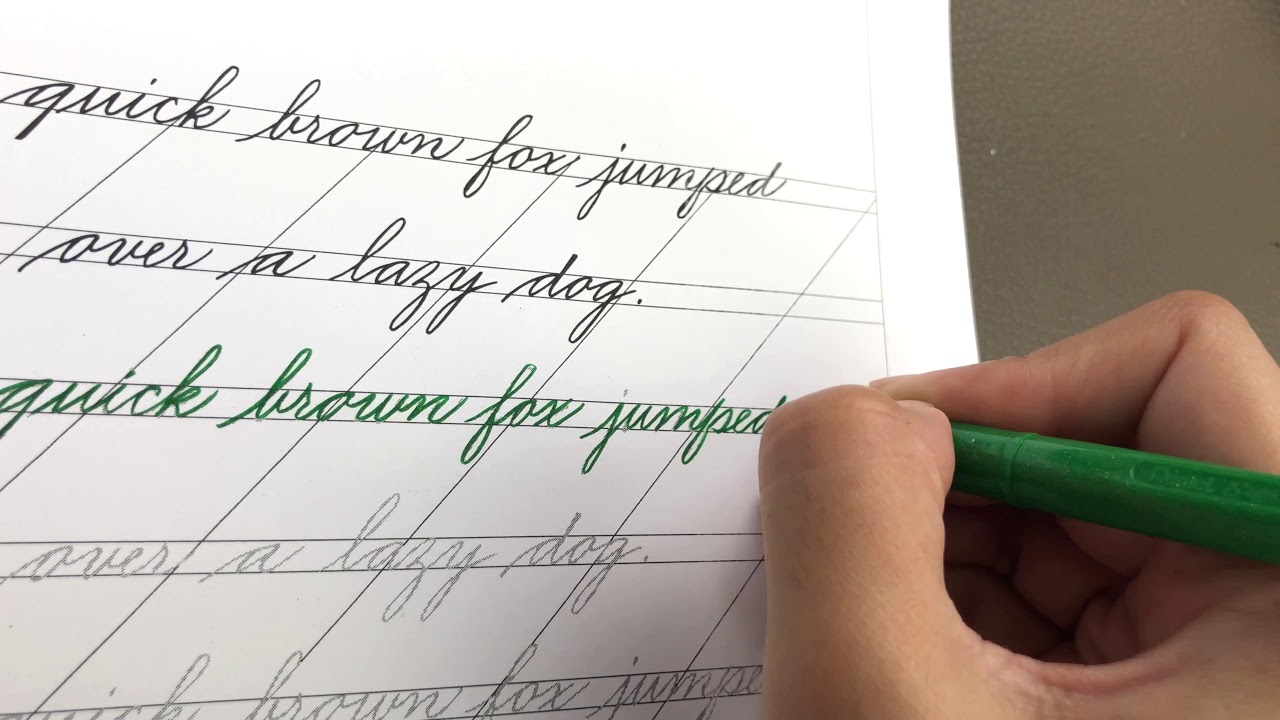 quick brown fox jumped
over a lazy dog.
quick brown fox jumped
over a lazy dog.
quick brown fox jumpe